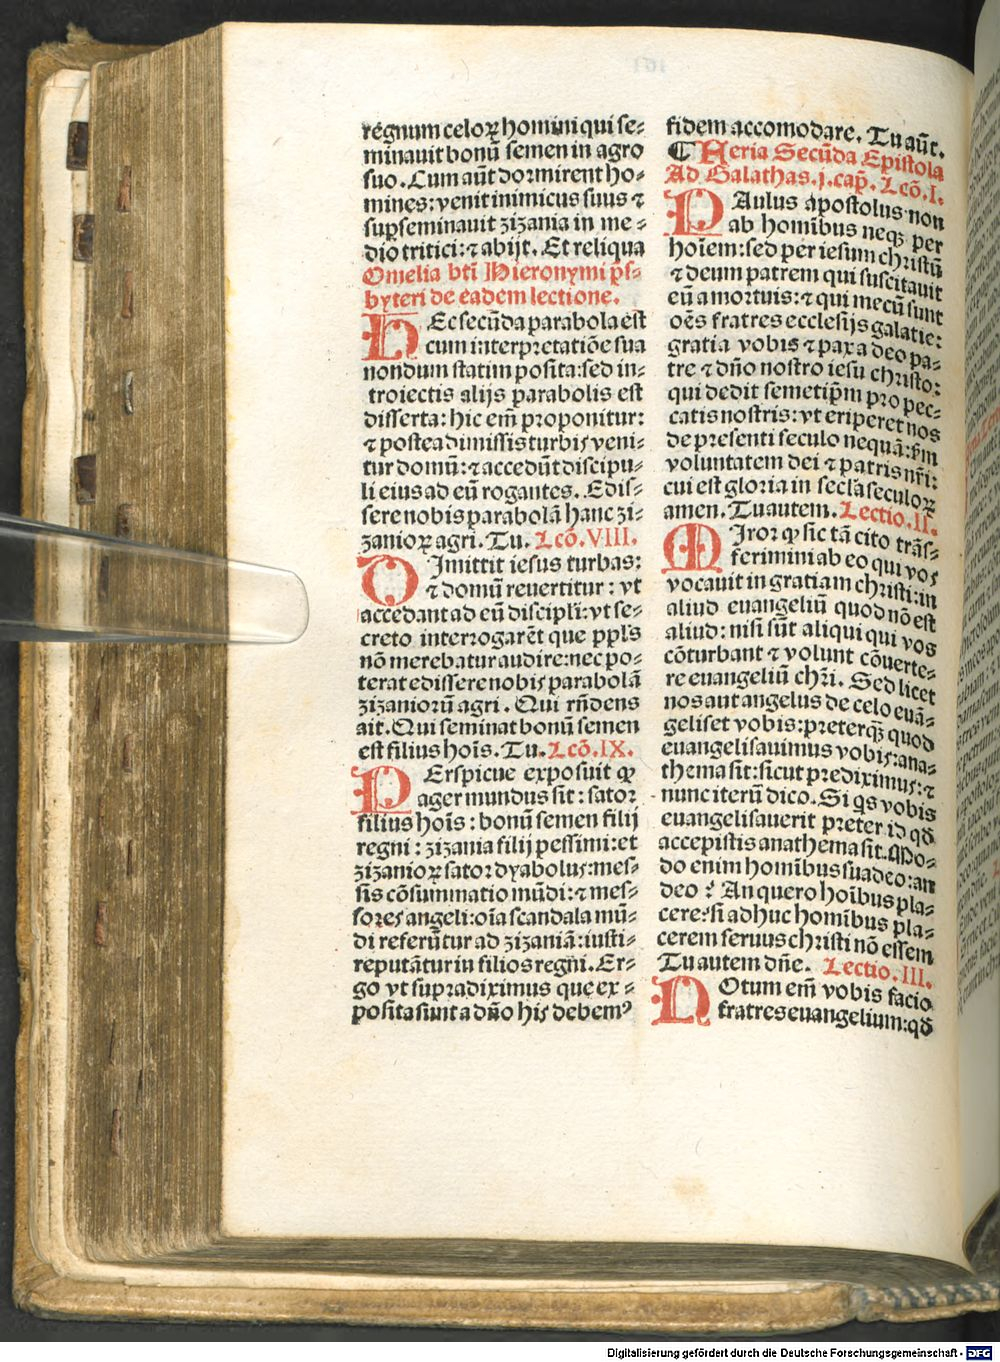 regnum celoꝝ homini qui se⸗
minauit bonū semen in agro
suo. Cum aūt dormirent ho⸗
mines: venit inimicus suus ⁊
suꝑseminauit zizania in me⸗
dio tritici: ⁊ abijt. Et reliqua
Omelia bti Hieronymi p̄s⸗
byteri de eadem lectione.
HEc secūda parabola est
cum interpretatiōe sua
nondum statim posita: sed in⸗
troiectis alijs parabolis est
disserta: hic em̄ proponitur:
⁊ postea dimissis turbis veni⸗
tur domū: ⁊ accedūt discipu⸗
li eius ad eū rogantes. Edis⸗
sere nobis parabolā hanc zi⸗
zanioꝝ agri. Tu. Lcō. VIII.
DImittit iesus turbas:
⁊ domū reuertitur: vt
accedant ad eū discipl̄i: vt se⸗
creto interrogarēt que ppl̄s
nō merebatur audire: nec po⸗
terat edissere nobis parabolā
zizaniorū agri. Qui rn̄dens
ait. Qui seminat bonū semen
est filius hoīs. Tu. Lcō. IX.
PErspicue exposuit ꝙ
ager mundus sit: sator
filius hoīs: bonū semen filij
regni: zizania filij pessimi: et
zizanioꝝ sator dyabolus: mes⸗
sis cōsummatio mūdi: ⁊ mes⸗
sores angeli: oīa scandala mū⸗
di referūtur ad zizaniā: iusti⸗
reputātur in filios regni. Er⸗
go vt supradiximus que ex⸗
posita sunt a dn̄o his debemꝰ
fidem accomodare. Tu aūt.
¶ Feria Secūda Epistola
Ad Galathas. j. cap̄. Lcō. I.
PAulus apostolus non
ab homībus neqꝫ per
hoīem: sed per iesum christū
⁊ deum patrem qui suscitauit
eū a mortuis: ⁊ qui mecū sunt
oēs fratres ecclesijs galatie:
gratia vobis ⁊ pax a deo pa⸗
tre ⁊ dn̄o nostro iesu christo:
qui dedit semetip̄m pro pec⸗
catis nostris: vt eriperet nos
de presenti seculo nequā: ẜm
voluntatem dei ⁊ patris nr̄i:
cui est gloria in secl̄a seculoꝝ
amen. Tu autem. Lectio. II.
MIror ꝙ sic tā cito trās⸗
ferimini ab eo qui vos
vocauit in gratiam christi: in
aliud euangeliū quod nō est
aliud: nisi sūt aliqui qui vos
cōturbant ⁊ volunt cōuerte⸗
re euangeliū chr̄i. Sed licet
nos aut angelus de celo euā⸗
geliset vobis: preterqꝫ quod
euangelisauimus vobis: ana⸗
thema sit: sicut prediximus: ⁊
nunc iterū dico. Si q̄s vobis
euangelisauerit preter id qd̄
accepistis anathema sit. Mo⸗
do enim homībus suadeo: an
deo? An quero hoībus pla⸗
cere: si adhuc homībus pla⸗
cerem seruus christi nō essem
Tu autem dn̄e. Lectio. III.
NOtum em̄ vobis facio
fratres euangelium: qd̄
Digitalisierung gefördert durch die Deutsche Forschungsgemeinschaft - DFG